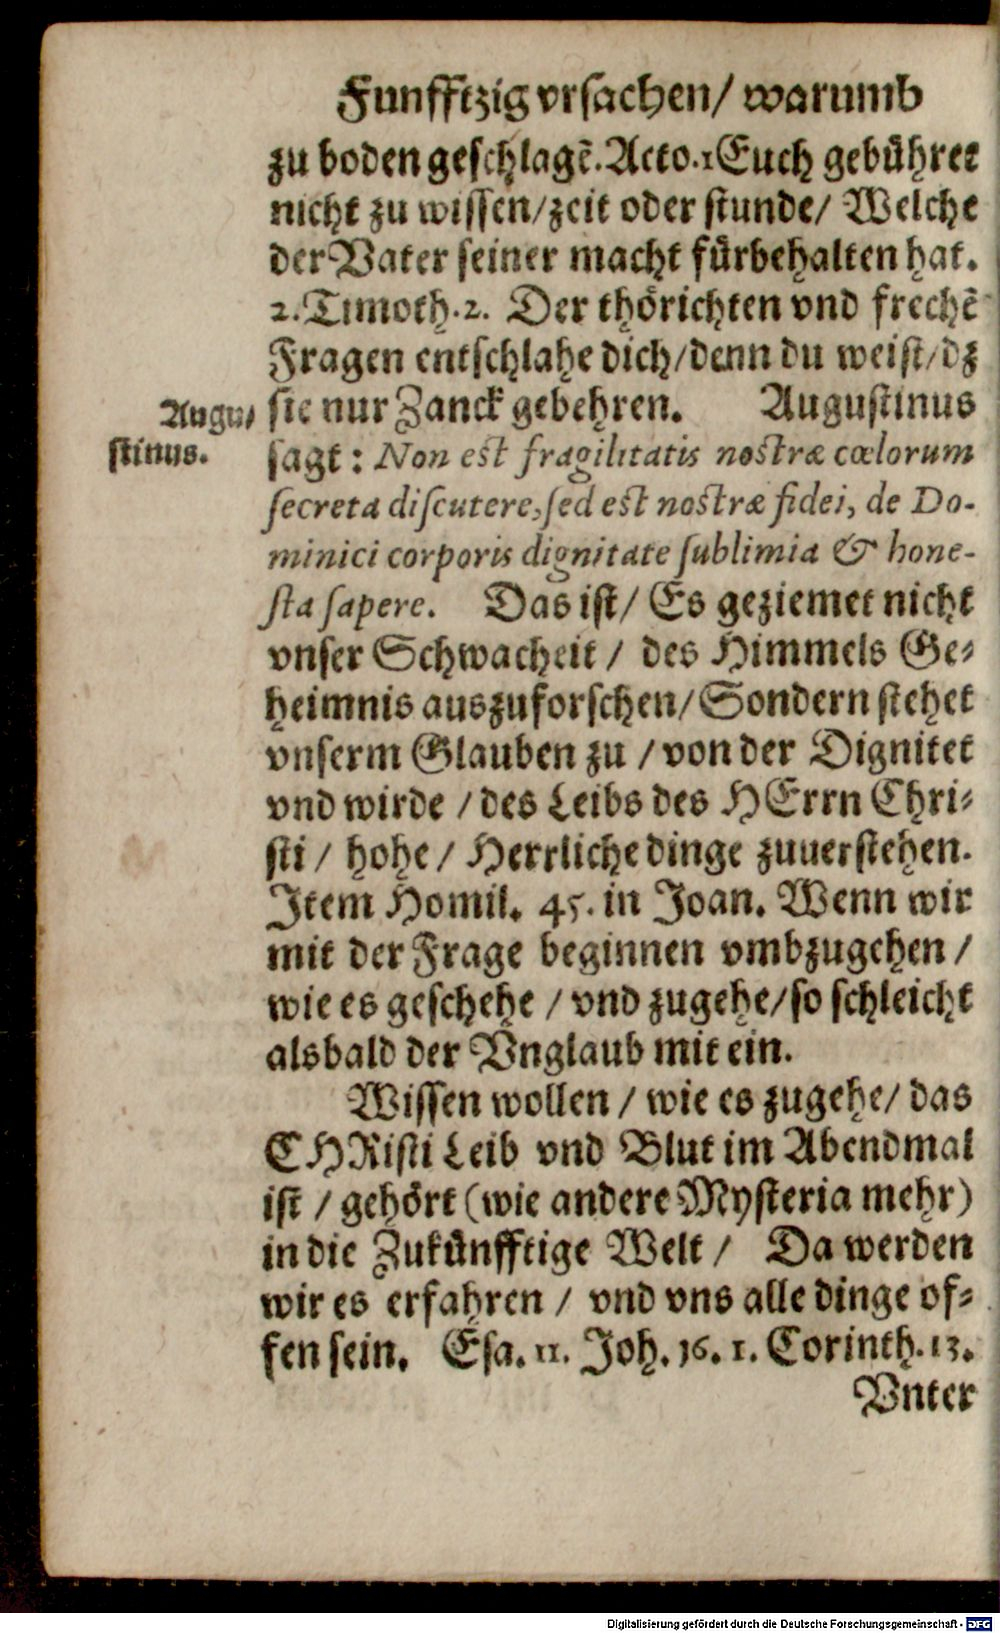 Funfftzig vrsachen/ warumb
zu boden geschlagẽ. Acto.1 Euch gebühret
nicht zu wissen/zeit oder stunde/ Welche
der Vater seiner macht fürbehalten hat.
2.Timoth.2. Der thörichten vnd frechẽ
Fragen entschlahe dich/denn du weist/dz
sie nur Zanck gebehren. Augustinus
Augu-
stinus.
sagt: Non est fragilitatis nostræ cœlorum
secreta discutere, sed est nostræ fidei, de Do-
minici corporis dignitate sublimia & hone-
sta sapere. Das ist/ Es geziemet nicht
vnser Schwacheit/ des Himmels Ge-
heimnis auszuforschen/Sondern stehet
vnserm Glauben zu / von der Dignitet
vnd wirde / des Leibs des HErrn Chri-
sti / hohe / Herrliche dinge zuuerstehen.
Item Homil. 45. in Joan. Wenn wir
mit der Frage beginnen vmbzugehen /
wie es geschehe / vnd zugehe/so schleicht
alsbald der Vnglaub mit ein.
Wissen wollen / wie es zugehe/ das
CHRisti Leib vnd Blut im Abendmal
ist / gehört (wie andere Mysteria mehr)
in die Zukünfftige Welt / Da werden
wir es erfahren / vnd vns alle dinge of-
fen sein. Esa. 11. Joh. 16. 1. Corinth. 13.
Vnter
Digitalisierung gefördert durch die Deutsche Forschungsgemeinschaft - DFG